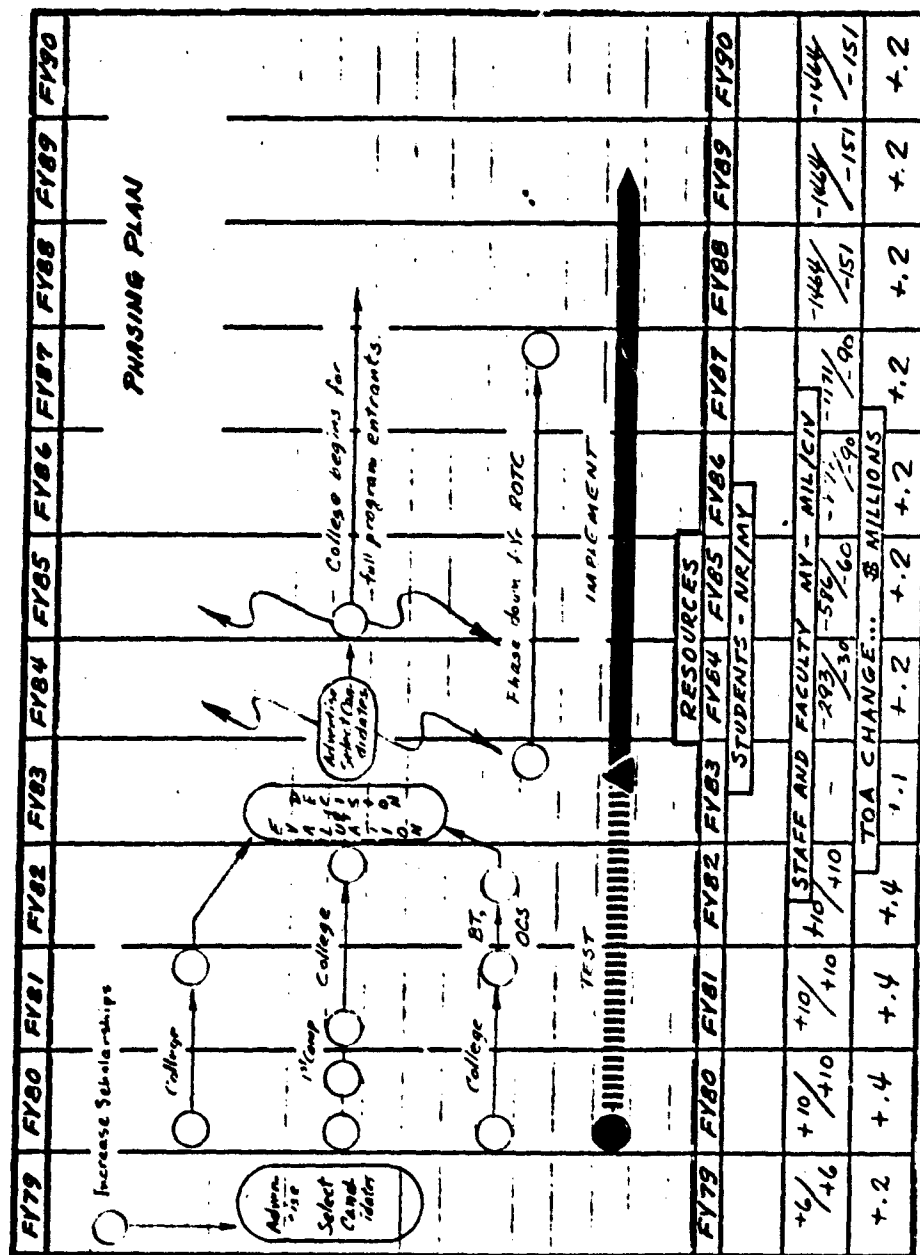 FY79 FY80 FY81 FY82 FY83 FY84 FY85 FY86 FY87 FY88 FY89 FY90
PHASING PLAN
Increase Scholarships
Select
Candidates
College
1st Camp
College
College
BT,
OCS
EVALUATION
DECISION
Advertise
Select Can-
didates
College begins for
full program entrants.
Phase down 4-Yr ROTC
TEST
IMPLEMENT
RESOURCES
FY79 FY80 FY81 FY82 FY83 FY84 FY85 FY86 FY87 FY88 FY89 FY90
STUDENTS - NR/MY
STAFF AND FACULTY MY - MIL/CIV
+6/+6 +10/+10 +10/+10 +10/+10 - -293/-30 -586/-60 /-90 /-90 -1464/-151 -1464/-151 -1464/-151
TOA CHANGE... $ MILLIONS
+.2 +.4 +.4 +.4 +.1 +.2 +.2 +.2 +.2 +.2 +.2 +.2